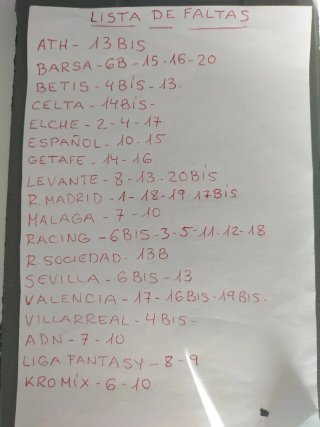 LISTA DE FALTAS
ATH - 13BIS
BARSA - 6B - 15 - 16 - 20
BETIS - 4BÍS - 13.
CELTA - 14BÍS -
ELCHE - 2 - 4 - 17
ESPAÑOL - 10 - 15
GETAFE - 14 - 16
LEVANTE - 8 - 13 - 20BÍS
R. MADRID - 1 - 18 - 19 - 17BÍS
MALAGA - 7 - 10
RACING - 6BIS - 3 - 5 - 11 - 12 - 18
R. SOCIEDAD - 13B
SEVILLA - 6BIS - 13
VALENCIA - 17 - 16BIS - 19BIS -
VILLARREAL - 4BIS -
ADN - 7 - 10
LIGA FANTASY - 8 - 9
KROMÍX - 6 - 10